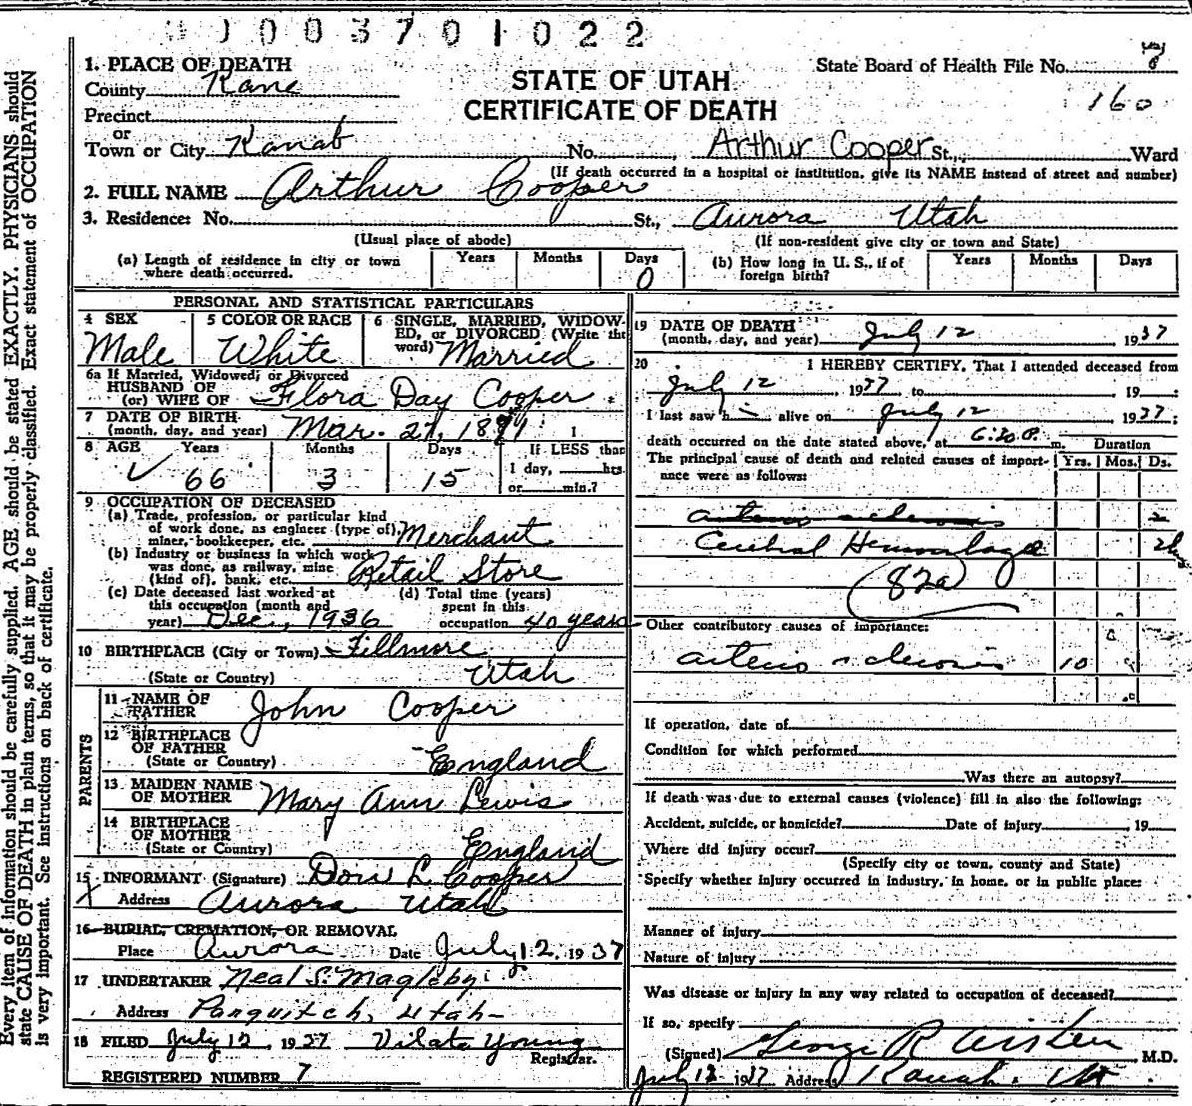 0 0 3 7 0 1 0 2 2
1. PLACE OF DEATH
County Kane
Precinct
or
Town or City Kanab
STATE OF UTAH
CERTIFICATE OF DEATH
State Board of Health File No. 7
160
No. , Arthur Cooper St., Ward
(If death occurred in a hospital or institution, give its NAME instead of street and number)
2. FULL NAME Arthur Cooper
3. Residence: No. St., Aurora Utah
(Usual place of abode) (If non-resident give city or town and State)
(a) Length of residence in city or town where death occurred. Years Months Days 0
(b) How long in U. S., if of foreign birth? Years Months Days
PERSONAL AND STATISTICAL PARTICULARS
4 SEX Male
5 COLOR OR RACE White
6 SINGLE, MARRIED, WIDOWED, or DIVORCED (Write the word) Married
6a If Married, Widowed, or Divorced
HUSBAND OF
(or) WIFE OF Flora Day Cooper
7 DATE OF BIRTH
(month, day, and year) Mar. 27, 1871
8 AGE Years 66 Months 3 Days 15
If LESS than
1 day, hrs.
or min.?
9 OCCUPATION OF DECEASED
(a) Trade, profession, or particular kind
of work done, as engineer (type of)
miner, bookkeeper, etc. Merchant
(b) Industry or business in which work
was done, as railway, mine
(kind of), bank, etc. Retail Store
(c) Date deceased last worked at
this occupation (month and
year) Dec., 1936
(d) Total time (years)
spent in this
occupation 40 years
10 BIRTHPLACE (City or Town) Fillmore
(State or Country) Utah
PARENTS
11 NAME OF
FATHER John Cooper
12 BIRTHPLACE
OF FATHER
(State or Country) England
13 MAIDEN NAME
OF MOTHER Mary Ann Lewis
14 BIRTHPLACE
OF MOTHER
(State or Country) England
15 INFORMANT (Signature) L. Cooper
X Address Aurora Utah
16 BURIAL, CREMATION, OR REMOVAL
Place Aurora Date July 12, 1937
17 UNDERTAKER Neal S. Magleby
Address Panguitch, Utah
18 FILED July 12, 1937 Vilate Young
Registrar.
REGISTERED NUMBER 7
19 DATE OF DEATH
(month, day, and year) July 12, 1937
20 I HEREBY CERTIFY, That I attended deceased from
July 12, 1937, to , 19 ;
I last saw h alive on July 12 1937;
death occurred on the date stated above, at P. m. Duration
The principal cause of death and related causes of importance were as follows: Yrs. Mos. Ds.
arterio sclerosis
Cerebral Hemorrhage
(82a)
Other contributory causes of importance:
arterio sclerosis 10
If operation, date of
Condition for which performed
Was there an autopsy?
If death was due to external causes (violence) fill in also the following:
Accident, suicide, or homicide? Date of injury , 19
Where did injury occur?
(Specify city or town, county and State)
Specify whether injury occurred in industry, in home, or in public place:
Manner of injury
Nature of injury
Was disease or injury in any way related to occupation of deceased?
If so, specify
(Signed) George R. Aiken M.D.
July 12 1937 Address Kanab, Ut
Every item of information should be carefully supplied. AGE should be stated EXACTLY. PHYSICIANS should
state CAUSE OF DEATH in plain terms, so that it may be properly classified. Exact statement of OCCUPATION
is very important. See instructions on back of certificate.